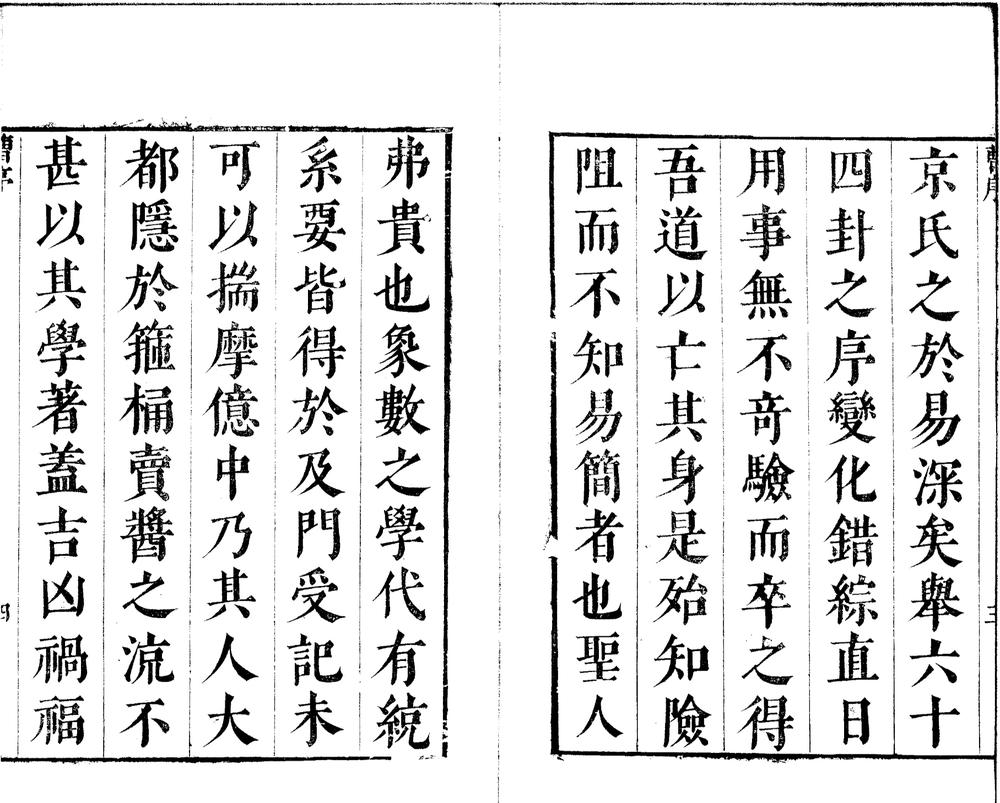 京氏之於易深矣舉六十
四卦之序變化錯綜直日
用事無不奇驗而卒之得
吾道以亡其身是殆知險
阻而不知易簡者也聖人
弗貴也象數之學代有統
系要皆得於及門受記未
可以揣摩億中乃其人大
都隱於箍桶賣醬之流不
甚以其學著蓋吉凶禍福
四